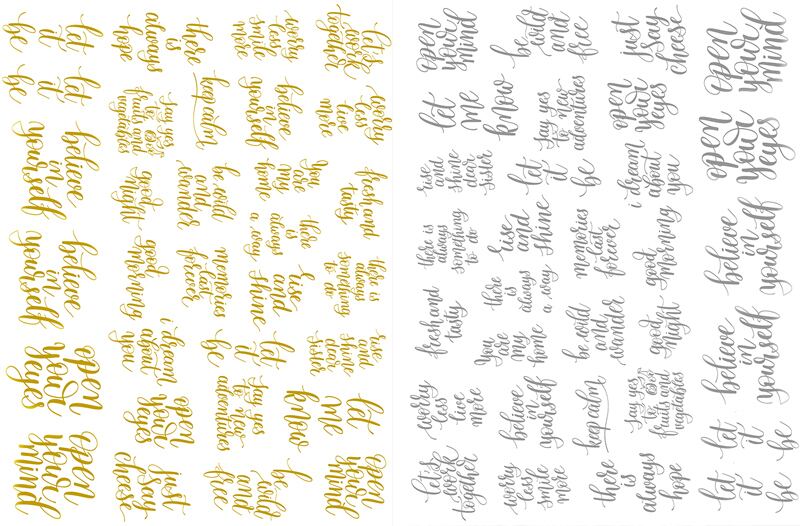 let's
work
together
worry
less
live
more
fresh and
tasty
there is
always
something
to do
rise
and
shine
dear
sister
let
me
know
open
your
mind
worry
less
smile
more
believe
in
yourself
You
are
my
home
there
is
always
a way
rise
and
shine
let
it
be
say yes
to new
adventures
be wild
and
free
there
is
always
hope
keep calm
be wild
and
wander
memories
last
forever
say yes
to
fruits and
vegetables
good
night
good
morning
i dream
about
you
open
your
eyes
just
say
cheese
let
it
be
let
it
be
believe
in
yourself
believe
in
yourself
open
your
eyes
open
your
mind
open
your
mind
let
me
know
rise
and
shine
dear
sister
there is
always
something
to do
fresh and
tasty
worry
less
live
more
let's
work
together
be wild
and
free
say yes
to new
adventures
let
it
be
rise
and
shine
there
is
always
a way
You
are
my
home
believe
in
yourself
worry
less
smile
more
just
say
cheese
open
your
eyes
i dream
about
you
memories
last
forever
good
morning
be wild
and
wander
good
night
keep calm
say yes
to
fruits and
vegetables
there
is
always
hope
open
your
mind
open
your
eyes
believe
in
yourself
believe
in
yourself
let
it
be
let
it
be